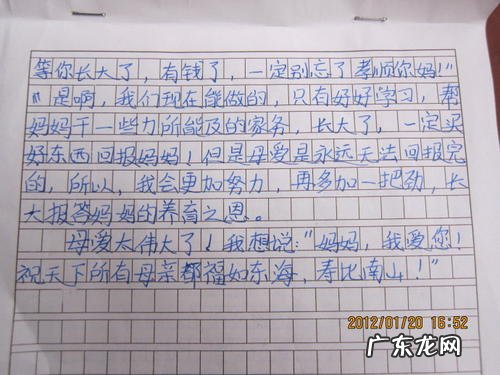 等你长大了，有钱了，一定别忘了孝顺你妈！"
"是啊，我们现在能做的，只有好好学习，帮
妈妈干一些力所能及的家务，长大了，一定买
好东西回报妈妈！但是母爱是永远无法回报完
的，所以，我会更加努力，再多加一把劲，长
大报答妈妈的养育之恩。
母爱太伟大了！我想说："妈妈，我爱您！
祝天下所有母亲都福如东海，寿比南山！"
2012/01/20 16:52
广东龙网